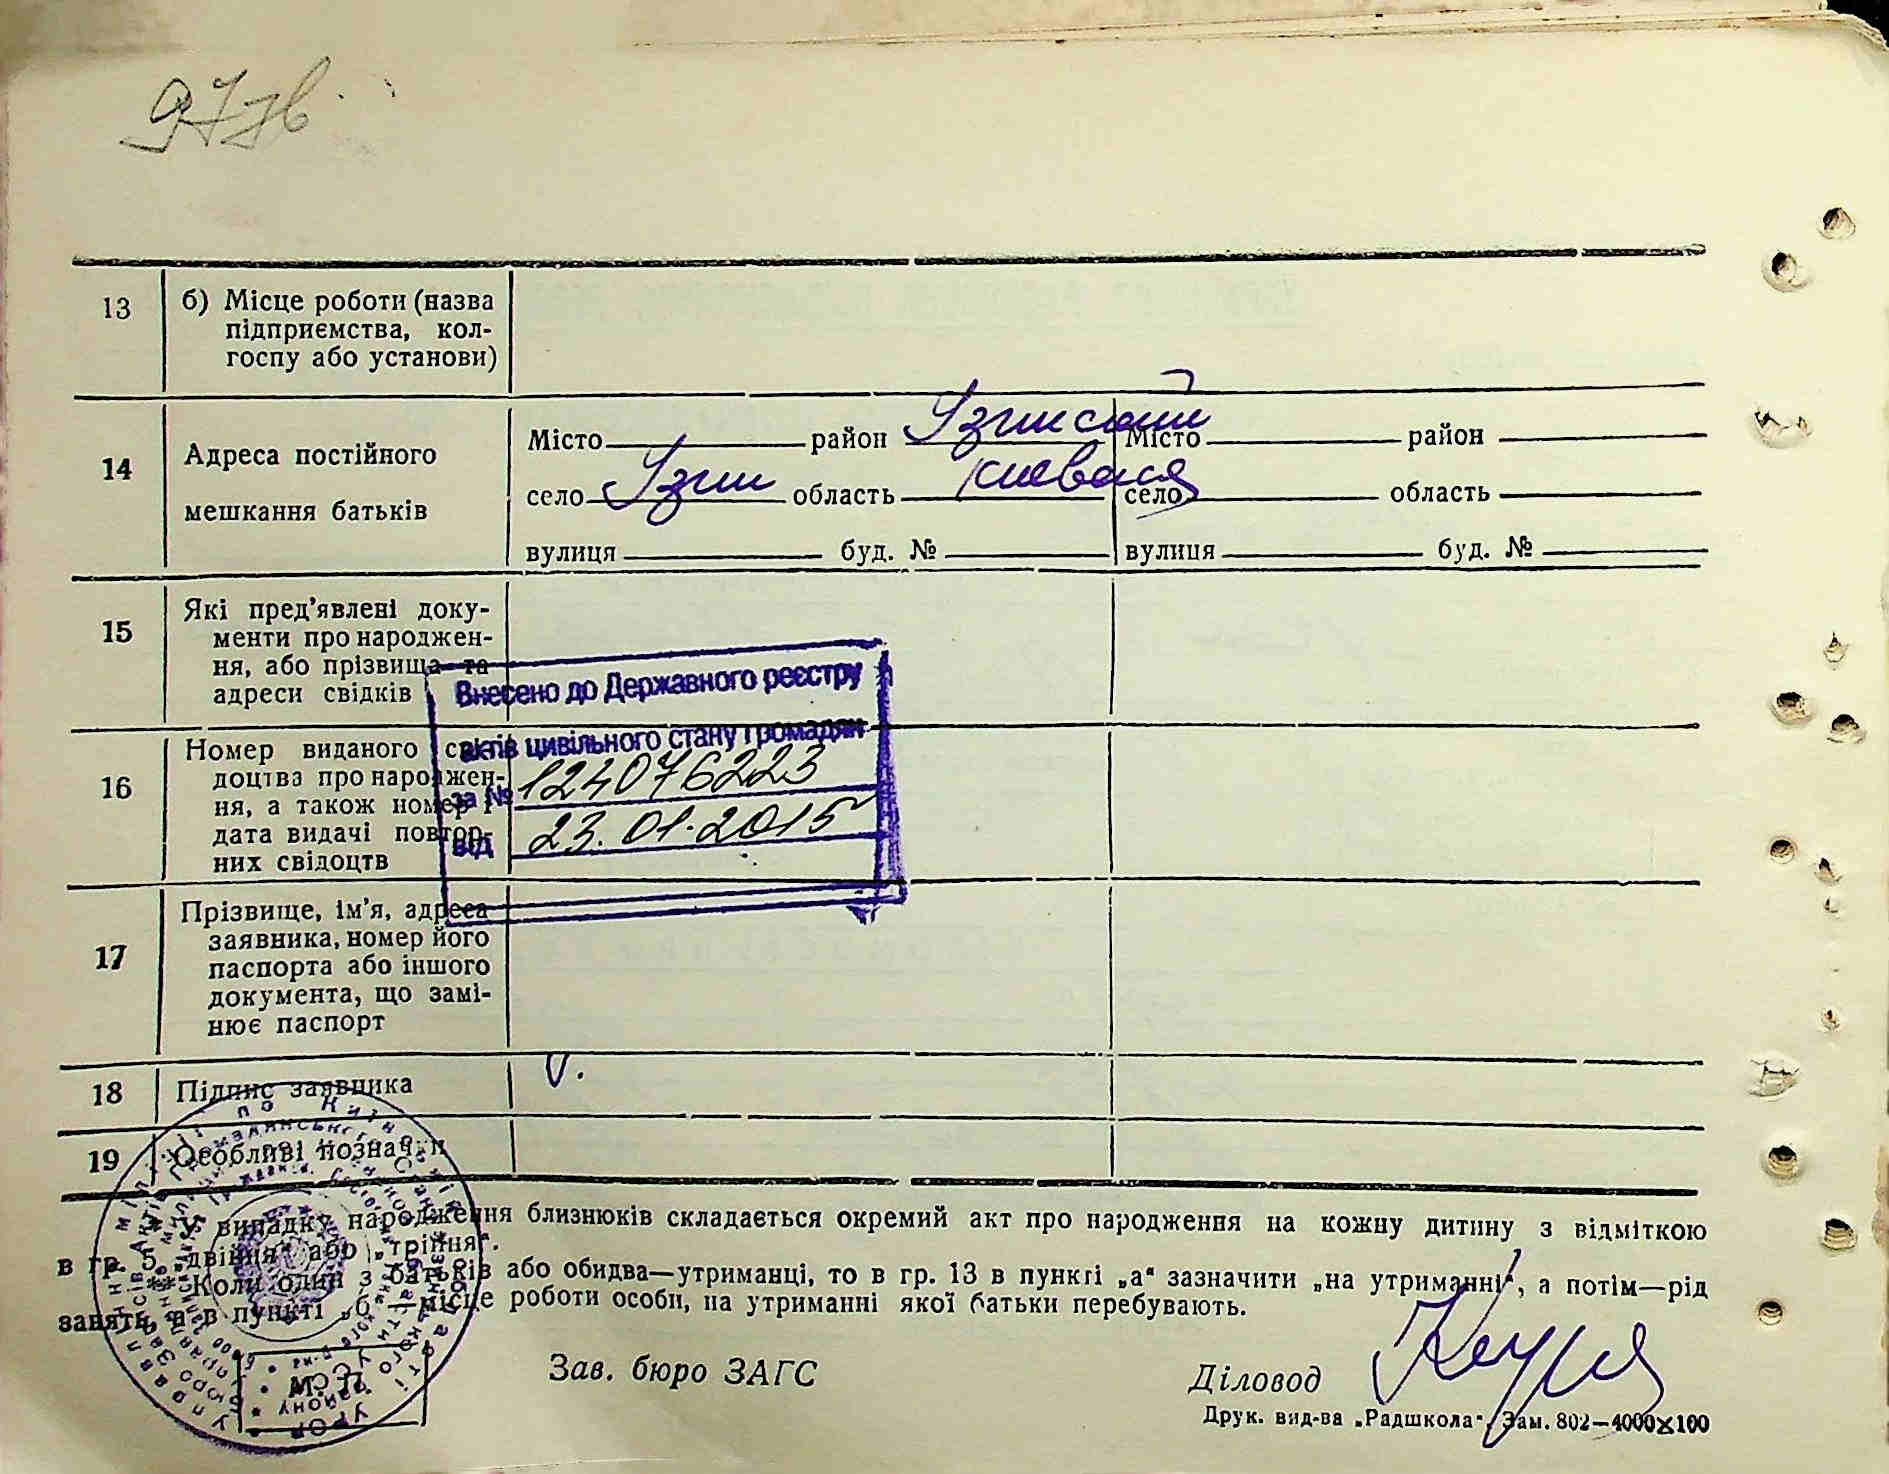 977в
13 б) Місце роботи (назва
підприємства, кол-
госпу або установи)
14 Адреса постійного
мешкання батьків
Місто район Узинский Місто район
село Узин область Киевская село область
вулиця буд. № вулиця буд. №
15 Які пред'явлені доку-
менти про народжен-
ня, або прізвища та
адреси свідків
Внесено до Державного реєстру
актів цивільного стану громадян
за № 124076223
від 23.01.2015
16 Номер виданого сві-
доцтва про народжен-
ня, а також номер і
дата видачі повтор-
них свідоцтв
17 Прізвище, ім'я, адреса
заявника, номер його
паспорта або іншого
документа, що замі-
нює паспорт
18 Підпис заявника
19 Особливі позначки
* У випадку народження близнюків складається окремий акт про народження на кожну дитину з відміткою
в гр. 5 „двійня" або „трійня".
** Коли один з батьків або обидва—утриманці, то в гр. 13 в пункті „а" зазначити „на утриманні", а потім—рід
занять, а в пункті „б"—місце роботи особи, на утриманні якої батьки перебувають.
М. П.
Зав. бюро ЗАГС Діловод
Друк. вид-ва „Радшкола". Зам. 802—4000×100